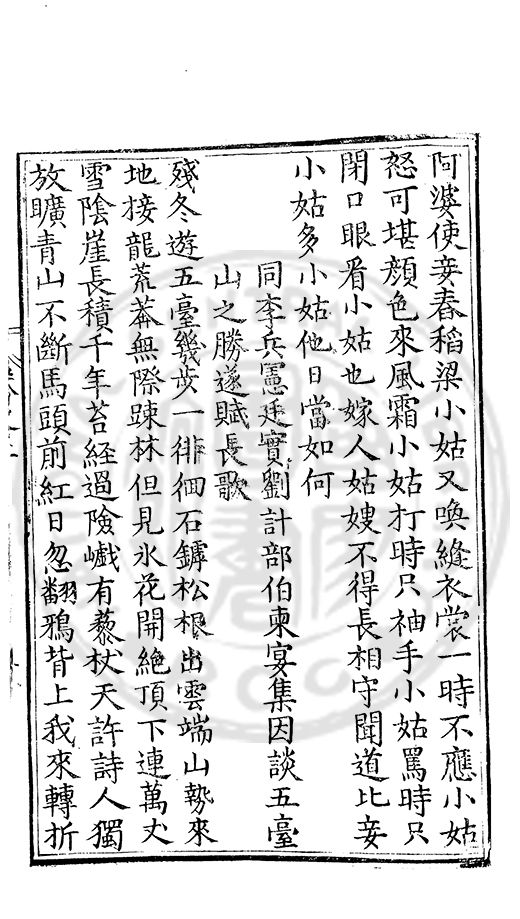 阿婆使妾舂稻梁小姑又喚縫衣裳一時不應小姑
怒可堪顏色來風霜小姑打時只袖手小姑罵時只
閉口眼看小姑也嫁人姑嫂不得長相守聞道比妾
小姑多小姑他日當如何
同李兵憲廷實劉計部伯東宴集因談五臺
山之勝遂賦長歌
殘冬遊五臺幾步一徘徊石鏬松根出雲端山勢來
地接龍荒莽無際踈林但見氷花開絶頂下連萬丈
雪陰崖長積千年苔經過險巇有藜杖天許詩人獨
放曠青山不斷馬頭前紅日忽翻鴉背上我來轉折